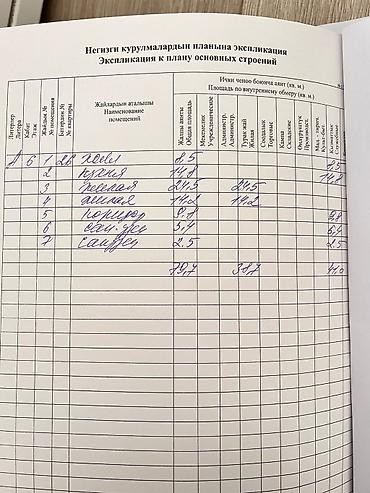 Негизги курулмалардын планына экспликация
Экспликация к плану основных строений
Ички ченөө боюнча аянт (кв. м.)
Площадь по внутреннему обмеру (кв. м.)
Литерлер
Литера
Кабат
Этаж
Жайдын №
№ помещения
Батирдин №
№ квартиры
Жайлардын аталышы
Наименование
помещений
Жалпы аянты
Общая площадь
Мекемелик
Учрежденческие
Админстр.
Администр.
Турак жай
Жилая
Соодалык
Торговые
Кампа
Складские
Өндүрүштүк
Производст.
А 6 1 26 холл 8,5 8,5
2 кухня 14,8 14,8
3 жилая 24,5 24,5
4 жилая 14,2 14,2
5 коридор 9,8 9,8
6 сан. узел 5,4 5,4
7 санузел 2,5 2,5
79,7 38,7 41,0